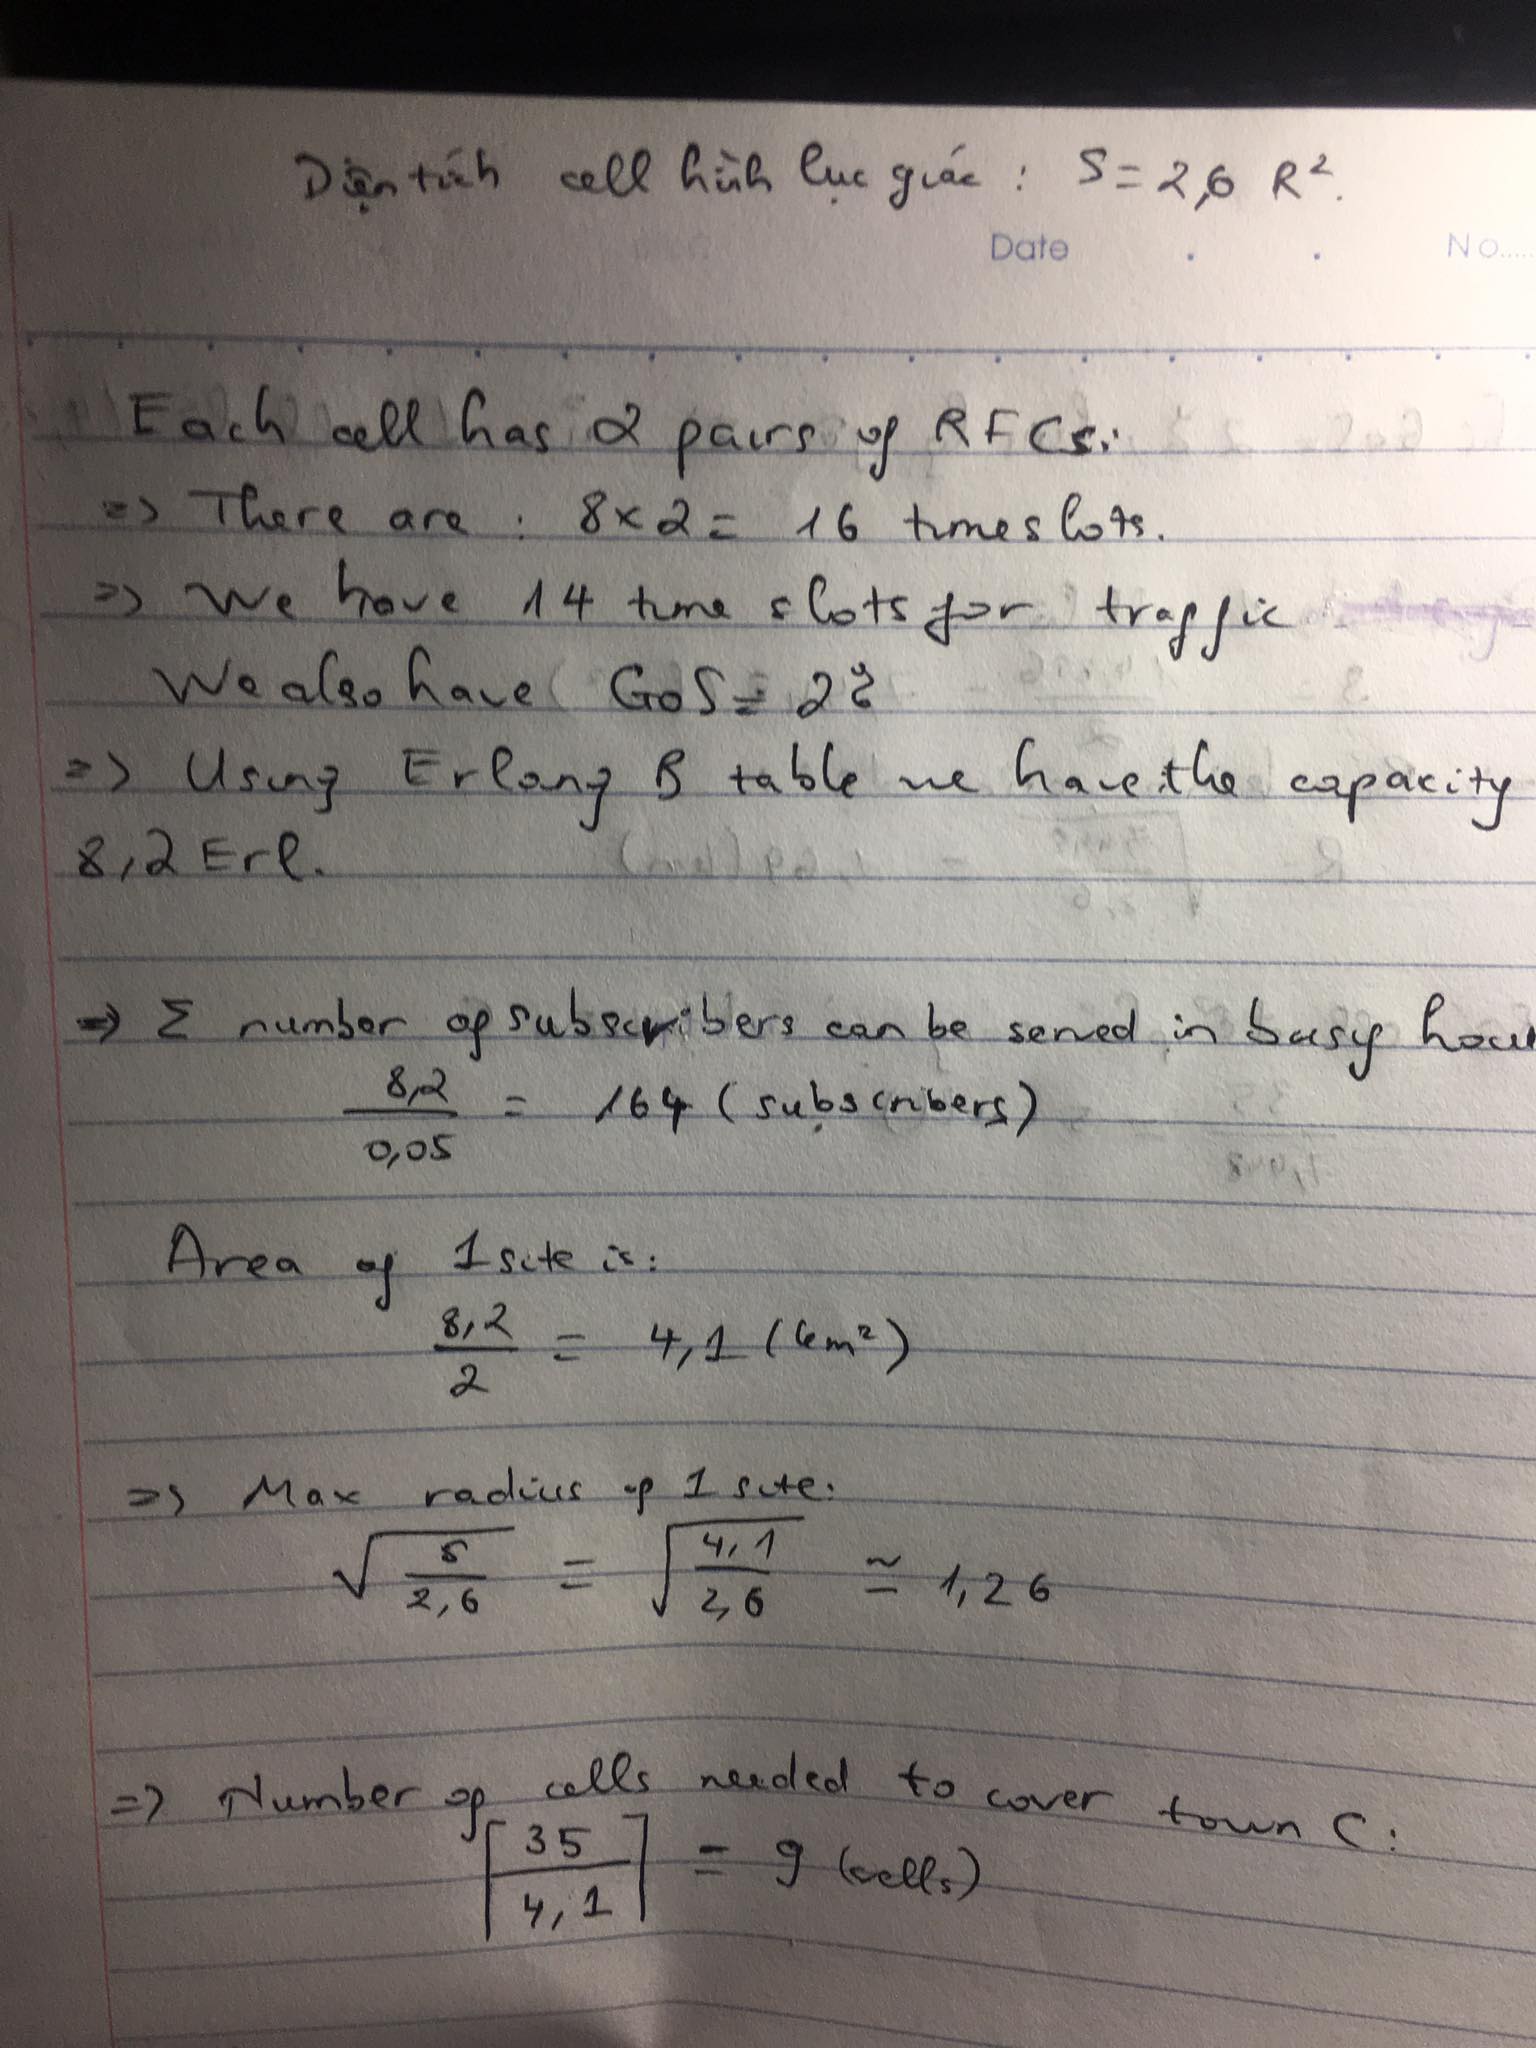 Diện tích cell hình lục giác : S = 2,6 R².
Date . . No.....
Each cell has 2 pairs of RFCs:
=> There are : 8x2 = 16 timeslots.
=> We have 14 time slots for traffic
We also have GoS = 2%
=> Using Erlang B table we have the capacity
8,2 Erl.
=> Σ number of subscribers can be served in busy hour
8,2 / 0,05 = 164 (subscribers)
Area of 1 site is:
8,2 / 2 = 4,1 (km²)
=> Max radius of 1 site:
√(S / 2,6) = √(4,1 / 2,6) ≃ 1,26
=> Number of cells needed to cover town C:
⌈35 / 4,1⌉ = 9 (cells)